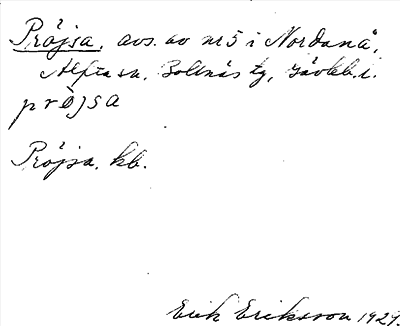 Pröjsa, avs. av nr 5 i Nordanå,
Alfta sn, Bollnäs tg, Gävleb. l.
pröjsa
Pröjsa. kb.
Erik Eriksson 1929.